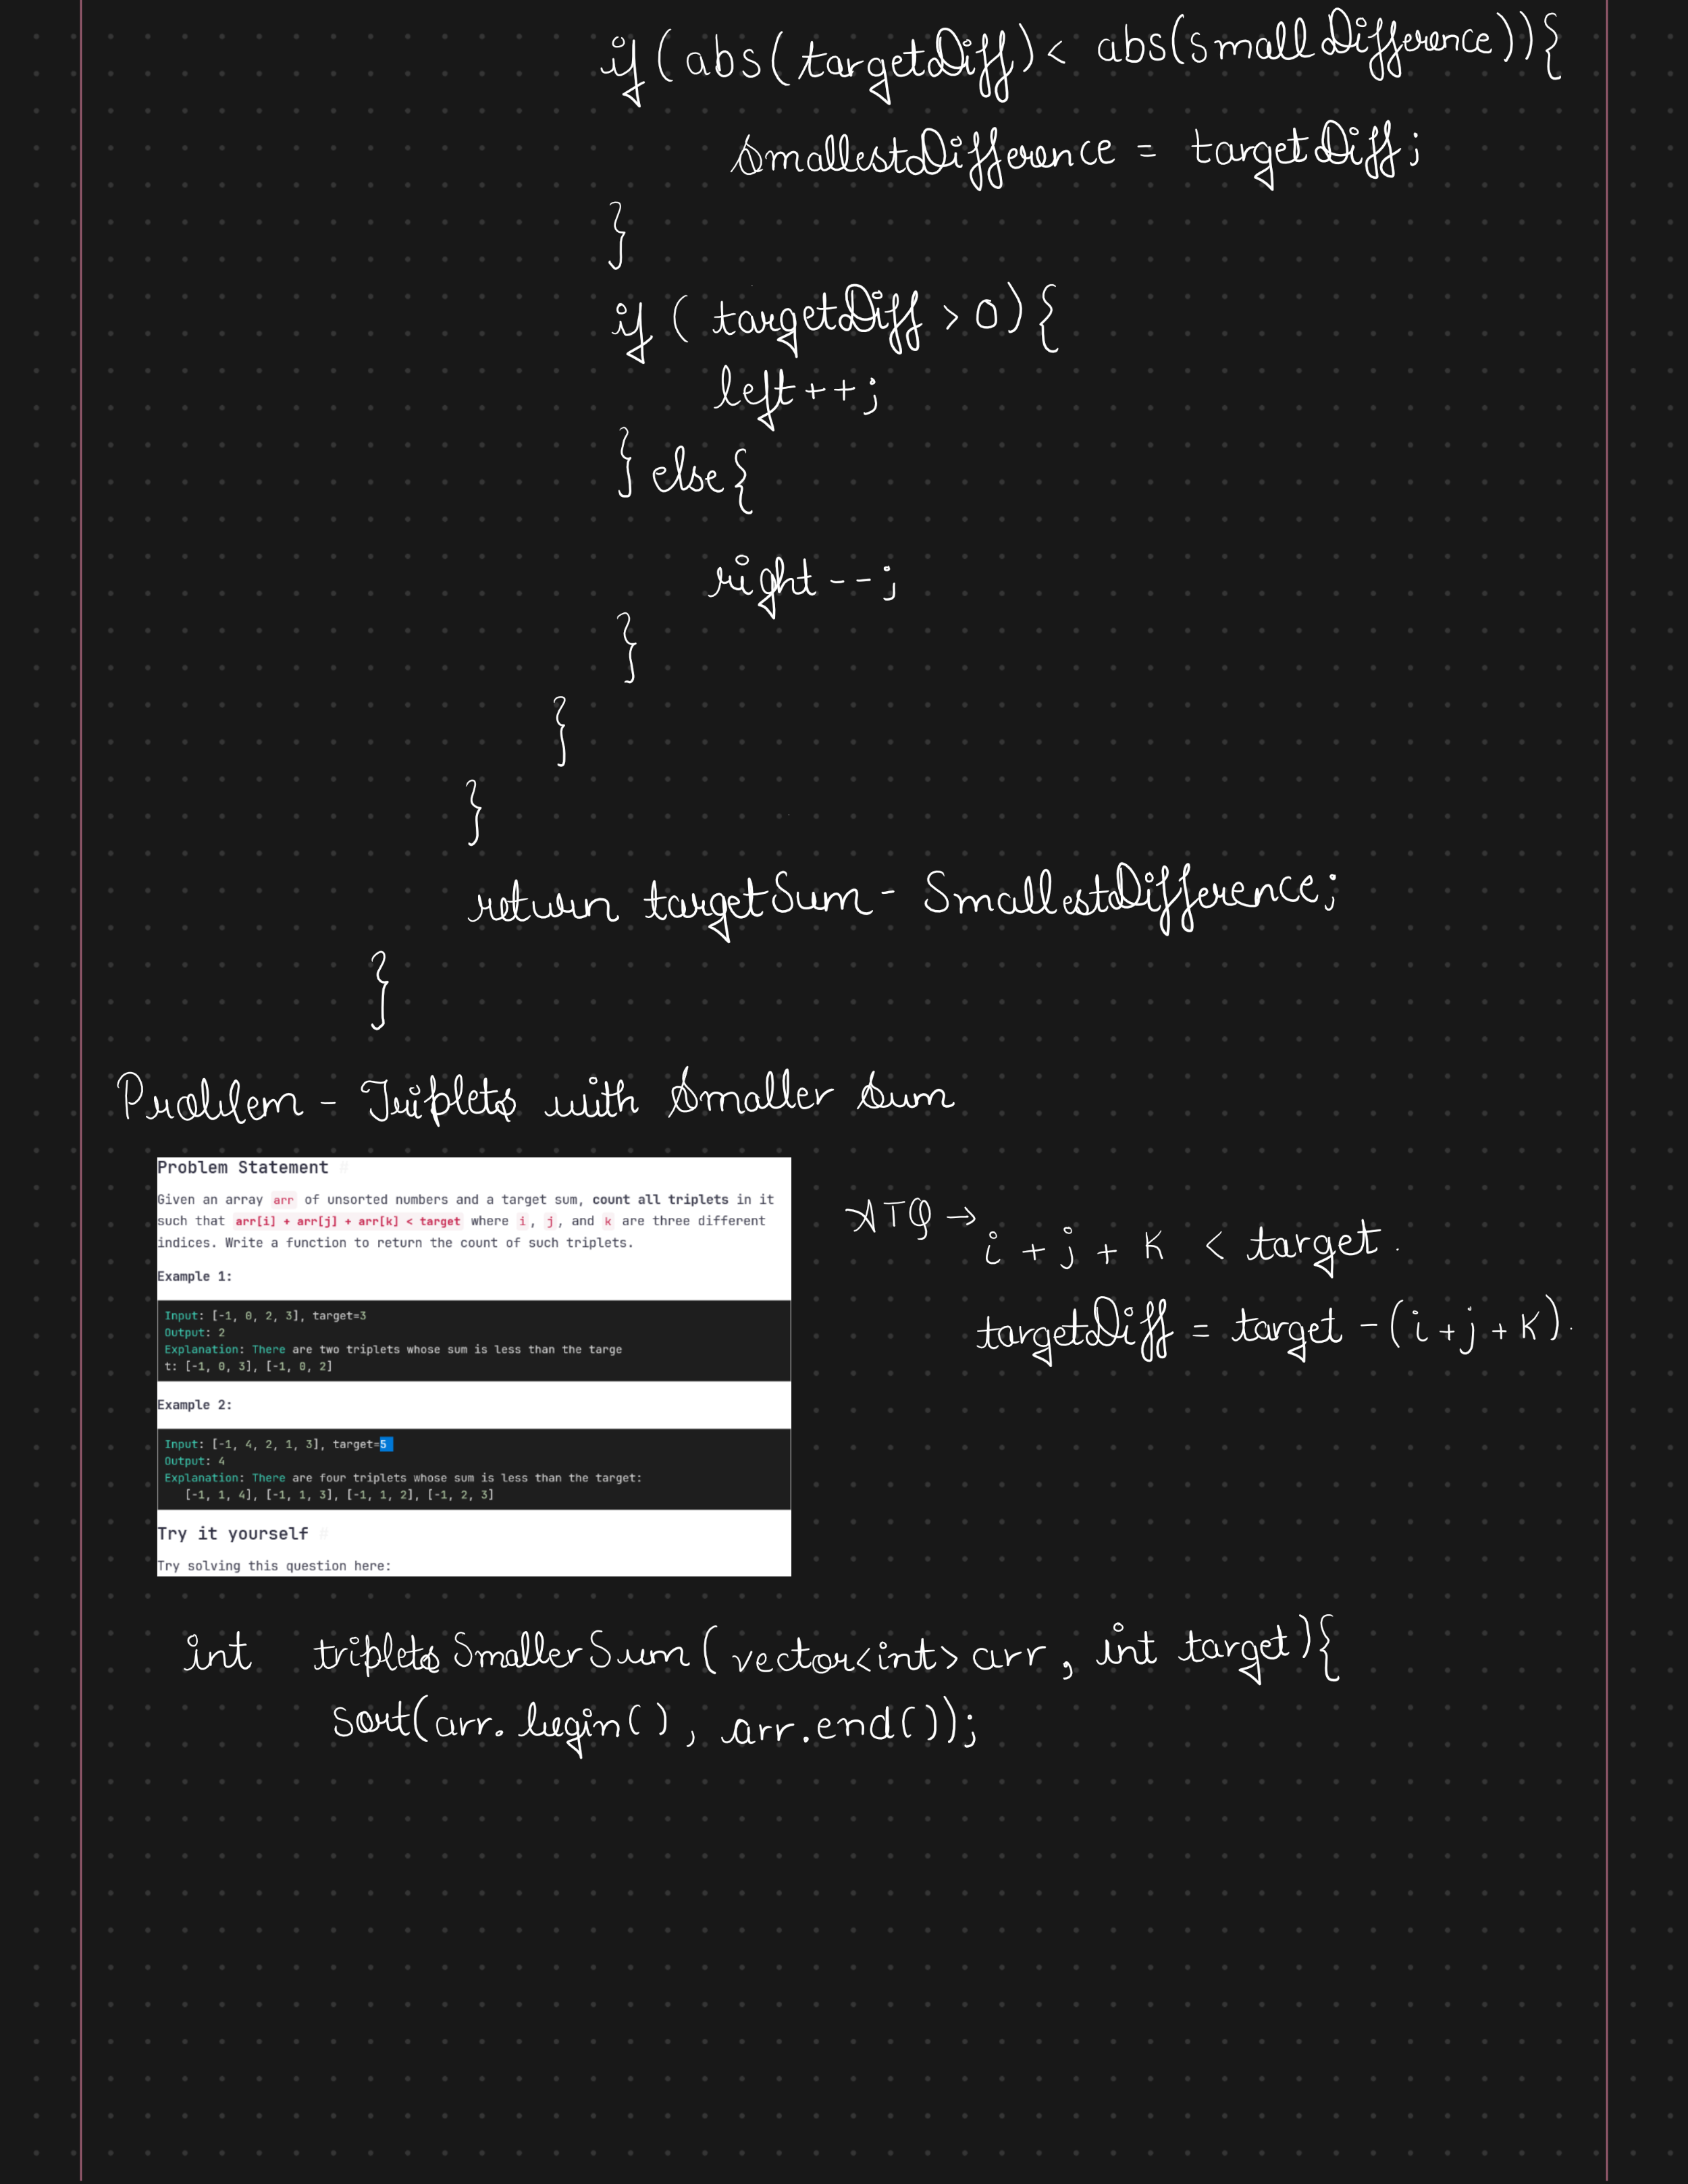 if (abs(targetDiff) < abs(smallDifference)){
smallestDifference = targetDiff;
}
if ( targetDiff > 0) {
left++;
} else {
right--;
}
}
}
return targetSum - SmallestDifference;
}
Problem - Triplets with Smaller Sum
Problem Statement #
Given an array arr of unsorted numbers and a target sum, count all triplets in it
such that arr[i] + arr[j] + arr[k] < target where i, j, and k are three different
indices. Write a function to return the count of such triplets.
Example 1:
Input: [-1, 0, 2, 3], target=3
Output: 2
Explanation: There are two triplets whose sum is less than the targe
t: [-1, 0, 3], [-1, 0, 2]
Example 2:
Input: [-1, 4, 2, 1, 3], target=5
Output: 4
Explanation: There are four triplets whose sum is less than the target:
[-1, 1, 4], [-1, 1, 3], [-1, 1, 2], [-1, 2, 3]
Try it yourself #
Try solving this question here:
ATQ →
i + j + K < target.
targetDiff = target - (i + j + K).
int tripletsSmallerSum (vector<int> arr, int target){
sort(arr.begin(), arr.end());